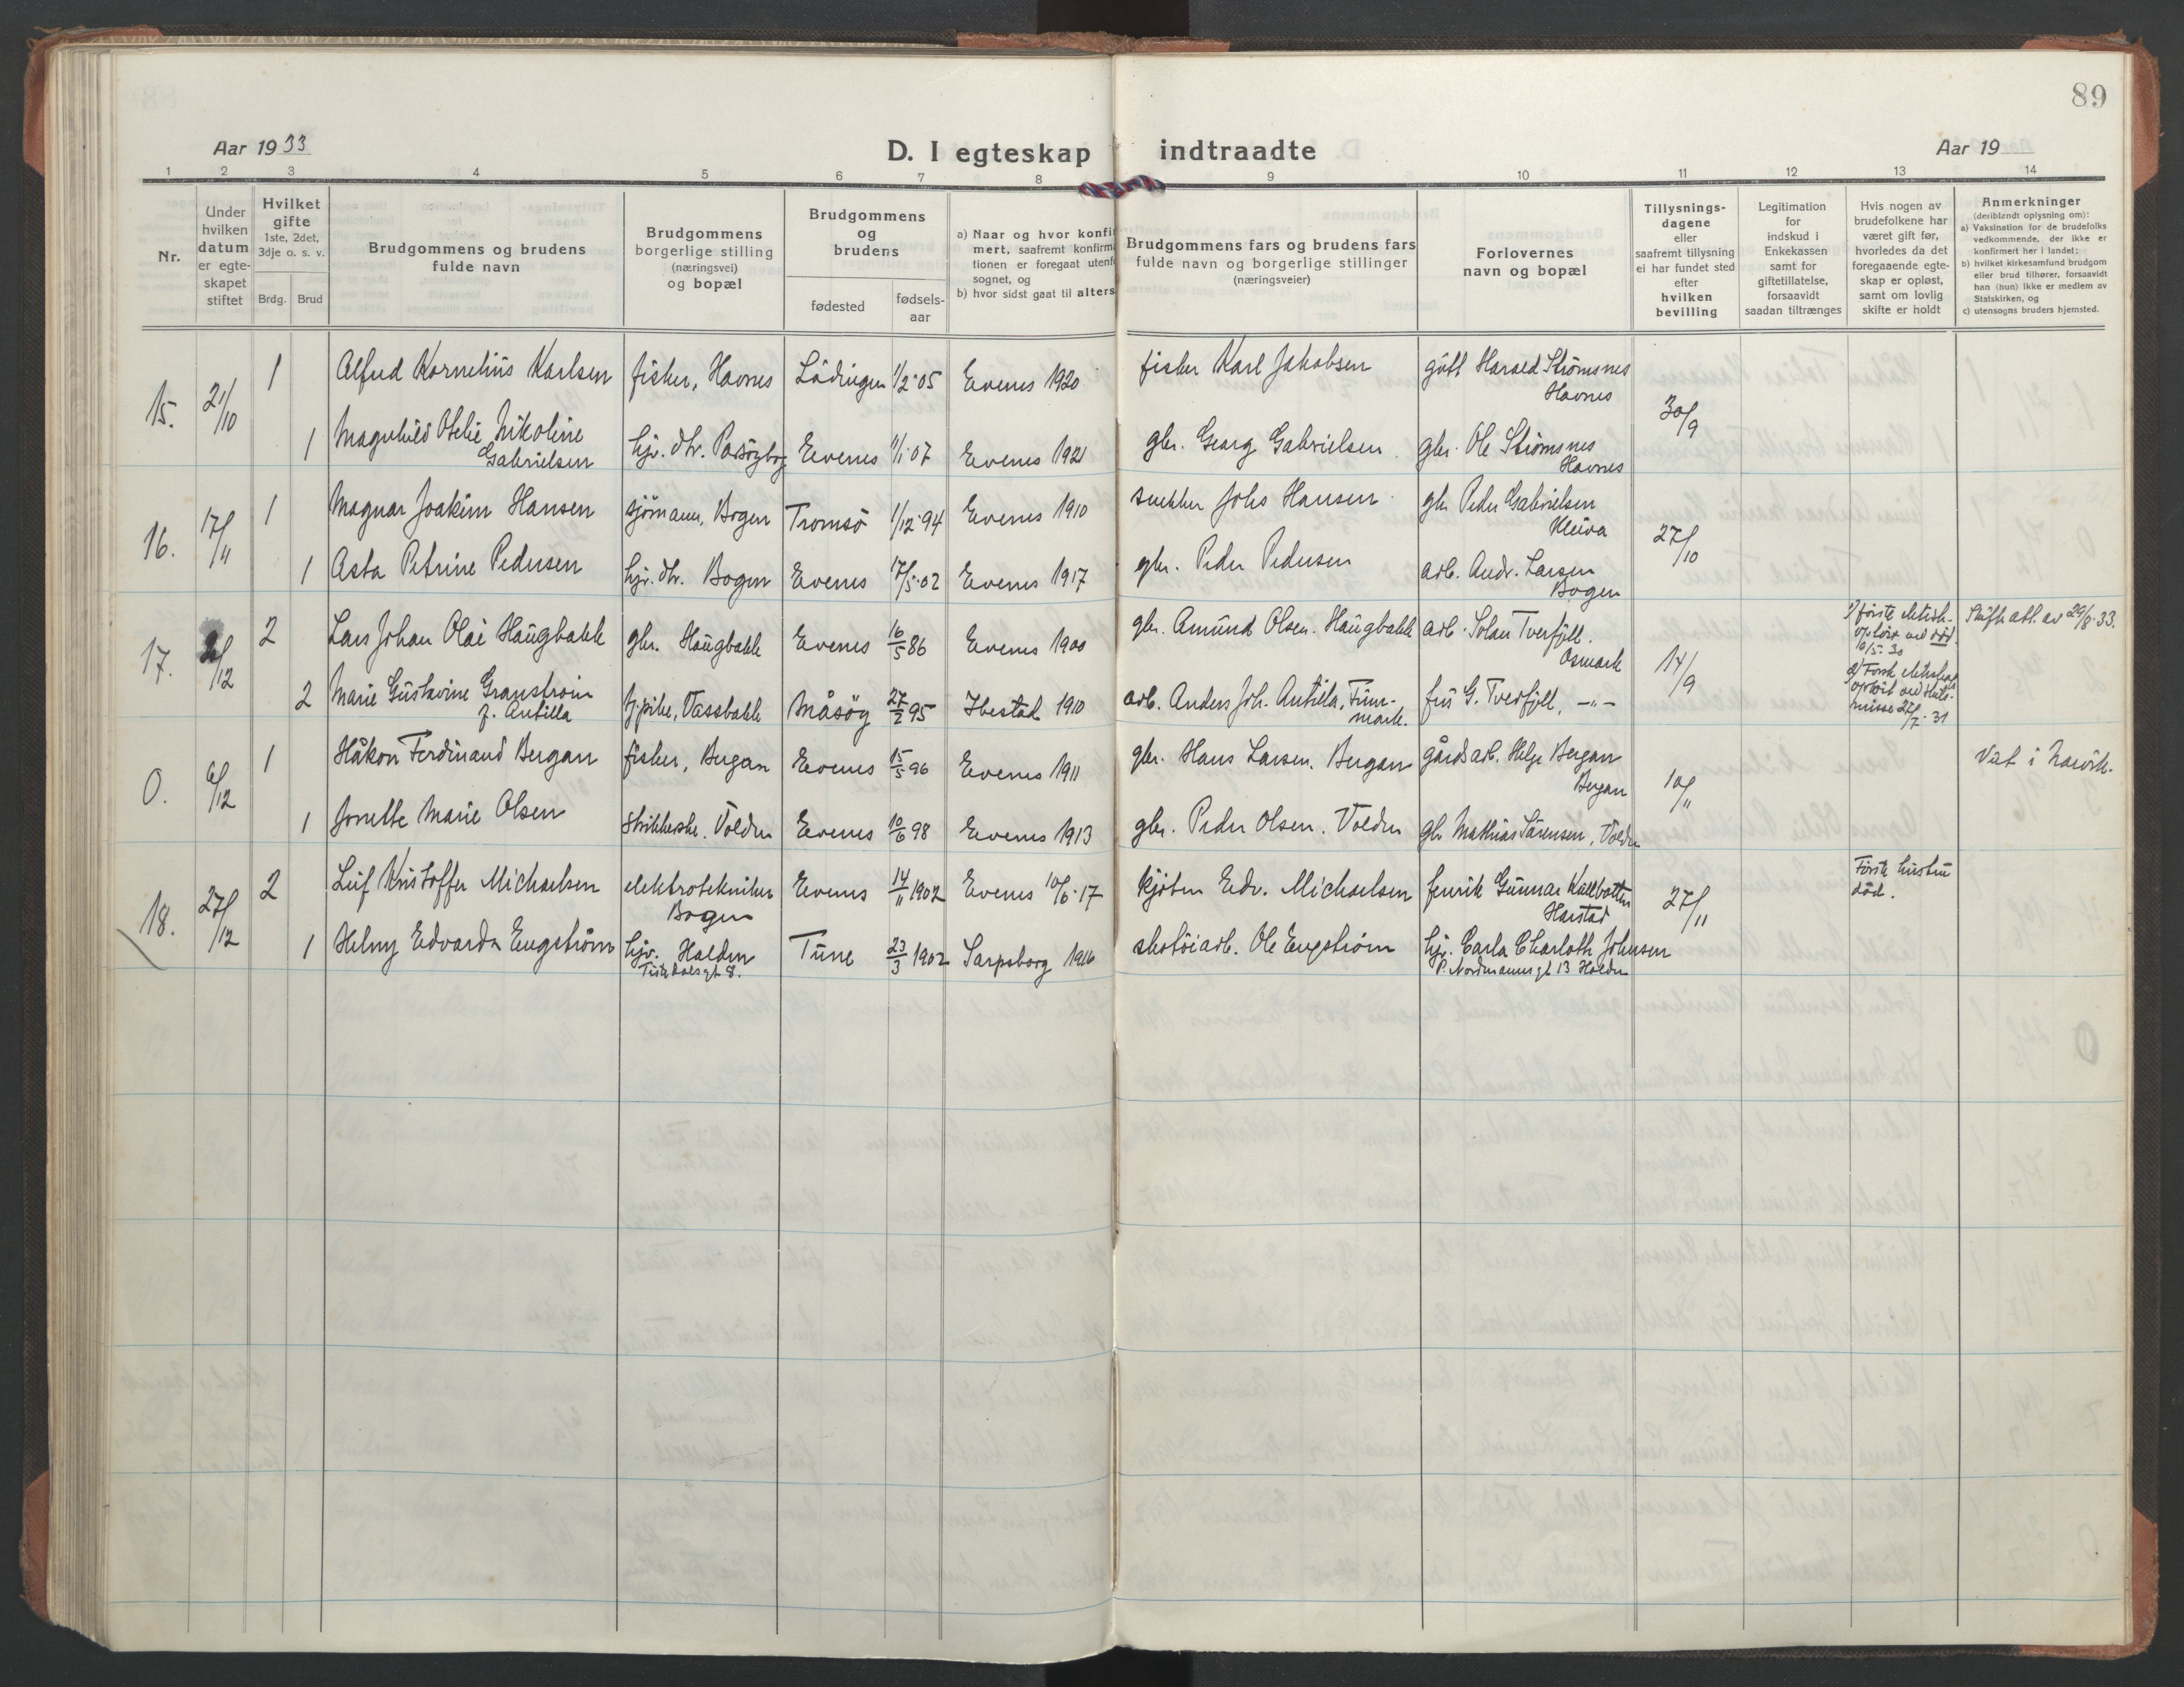 89
Aar 1933
D. I egteskap indtraadte
Aar 19
1 2 3 4 5 6 7 8 9 10 11 12 13 14
Nr.
Under
hvilken
datum
er egte-
skapet
stiftet
Hvilket
gifte
1ste, 2det,
3dje o. s. v.
Brdg. Brud
Brudgommens og brudens
fulde navn
Brudgommens
borgerlige stilling
(næringsvei)
og bopæl
Brudgommens
og
brudens
fødested
fødsels-
aar
a) Naar og hvor konfir
mert, saafremt konfirma
tionen er foregaat utenfo
sognet, og
b) hvor sidst gaat til alters
Brudgommens fars og brudens fars
fulde navn og borgerlige stillinger
(næringsveier)
Forlovernes
navn og bopæl
Tillysnings-
dagene
eller
saafremt tillysning
ei har fundet sted
efter
hvilken
bevilling
Legitimation
for
indskud i
Enkekassen
samt for
giftetillatelse,
forsaavidt
saadan tiltrænges
Hvis nogen av
brudefolkene har
været gift før,
hvorledes da det
foregaaende egte-
skap er opløst,
samt om lovlig
skifte er holdt
Anmerkninger
(deriblandt oplysning om):
a) Vaksination for de brudefolks
vedkommende, der ikke er
konfirmert her i landet;
b) hvilket kirkesamfund brudgom
eller brud tilhører, forsaavidt
han (hun) ikke er medlem av
Statskirken, og
c) utensogns bruders hjemsted.
15. 21/10 1 Alfred Kornelius Karlsen fisker, Havnes Lödingen 1/2·05 Evenes 1920 fisker Karl Jakobsen Harald Strömsnes
Havnes
30/9
1 Magnhild Otelie Nikoline
Gabrielsen
hjv. dtr. Evenes 11/1·07 Evenes 1921 gbr. Georg Gabrielsen gbr. Ole Strömsnes
Havnes
16. 17/11 1 Magnar Joakim Hansen sjömann, Bogen Tromsö 1/12·94 Evenes 1910 snekker Johs Hansen gbr Peder Gabrielsen
Kleiva
27/10
1 Asta Petrine Pedersen hjv. dtr. Bogen Evenes 17/5·02 Evenes 1917 gbr. Peder Pedersen arb. Andr. Larsen
Bogen
17. /12 2 Lars Johan Olai Haugbakk gbr. Haugbakk Evenes 16/5 86 Evenes 1900 gbr. Amund Olsen. Haugbakk arb. Johan Tverfjell.
Osmark
14/9
1) første ektesk.
opløst ved død
10/5·30
Skifte att. av 29/8·33.
2 Marie Gustavine Granstrøm
f. Antilla
tj.pike, Vassbakk Måsöy 27/2 95 Ibestad 1910 arb. Anders Joh. Antilla, Finn-
mark.
fru G. Tverfjell, -"-
2) Første ekteskap
opløst ved skils-
misse 27/7·31
0. 6/12 1 Håkon Ferdinand Bergan fisker, Bergan Evenes 15/5 96 Evenes 1911 gbr. Hans Larsen. Bergan gårdsarb. Helge Bergan
Bergan
10/11
Viet i Narvik.
1 Jonette Marie Olsen strikkerske. Volden Evenes 10/6 98 Evenes 1913 gbr. Peder Olsen. Volden gbr Mathias Sörensen, Volden
18. 27/12 2 Leif Kristoffer Michaelsen elektrotekniker
Bogen
Evenes 14/11 1902 Evenes 10/6·17 Edv. Michaelsen fenrik Gunnar Kallbotten
Harstad
27/11
Første hustru
död.
1 Helny Edvarda Engström hjv. Halden
Tistedalsgt 8.
Tune 23/3 1902 Sarpsborg 1916 skotöiarb. Ole Engström hjv. Carla Charloth Johnsen
P. Nordmannsgt 13 Halden